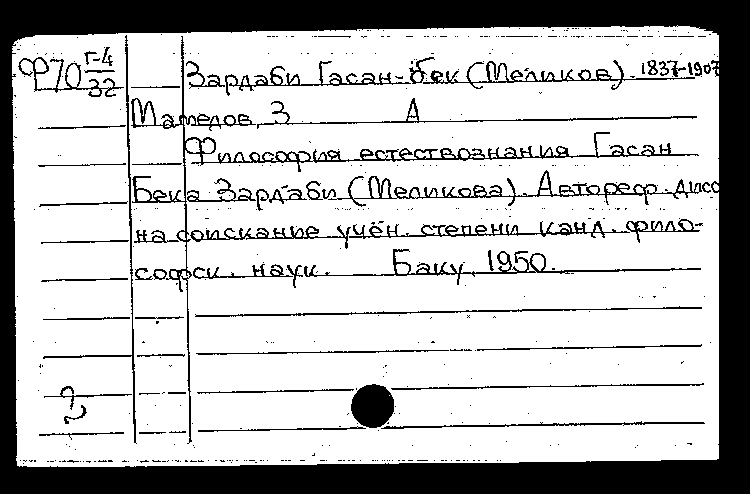 Ф70 Г-4/32 Зардаби Гасан-бек (Меликов). 1837-1907
Мамедов, З А
Философия естествознания Гасан
Бека Зардаби (Меликова). Автореф. дисс
на соискание учён. степени канд. фило-
софск. наук. Баку, 1950.
2